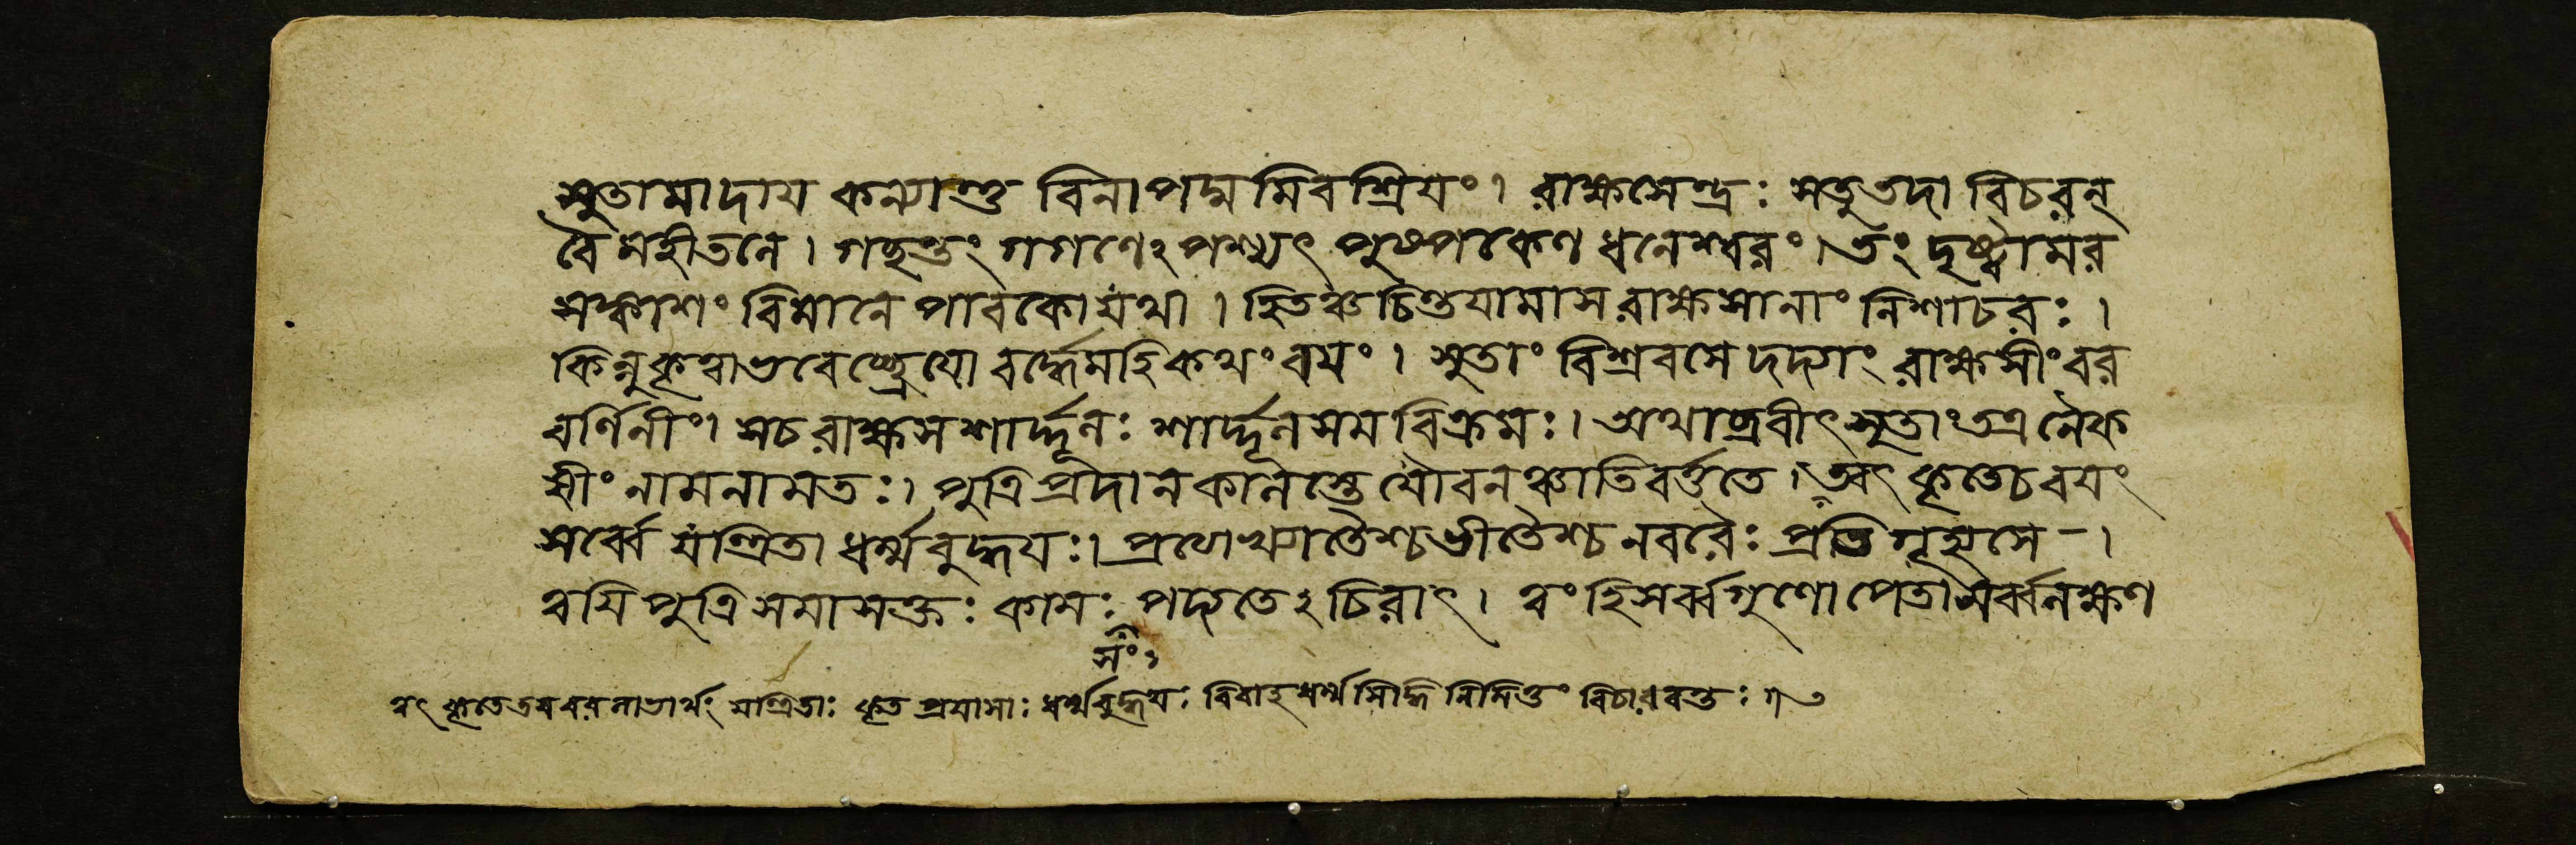 সুতামাদায কন্যান্তু বিনা পদ্মমিবশ্রিযং। রাক্ষসেন্দ্রঃ সতুতদা বিচরন্
বৈ মহীতলে। গচ্ছন্তং গগণেঽপশ্যৎ পুষ্পকেণ ধনেশ্বরং। তং দৃষ্ট্বামর
সঙ্কাশং বিমানে পাবকো যথা। হিতঞ্চ চিন্তযামাস রাক্ষসানাং নিশাচরঃ।
কিন্নুকৃত্বা ভবেচ্ছ্রেযো বর্দ্ধেমহি কথং বযং। সুতাং বিশ্রবসে দদ্যাং রাক্ষসীং বর
বর্ণিনীং। সচ রাক্ষস শার্দ্দূলঃ শার্দ্দূল সম বিক্রমঃ। অথাব্রবীৎ সুতাং তত্র নৈক
ষীং নাম নামতঃ। পুত্রি প্রদান কালস্তে যৌবনঞ্চাতিবর্ত্ততে। ত্বৎ কৃতেচ বযং
সর্ব্বে যন্ত্রিতা ধর্ম্মবুদ্ধযঃ। প্রত্যেখ্যাতৈশ্চ ভীতৈশ্চ নবরৈঃ প্রতি গৃহ্যসে-।
ত্বযি পুত্রি সমাসক্তঃ কামঃ পদ্যতেঽচিরাৎ। ত্বং হি সর্ব্বগুণোপেতা সর্ব্বলক্ষণ
সং
ত্বৎ কৃতে তব বরলাভার্থং যন্ত্রিতাঃ কৃত প্রযাসাঃ ধর্ম্মবুদ্ধযঃ বিবাহ ধর্ম্ম সিদ্ধি নিমিত্তং বিচারবন্তঃ ৭